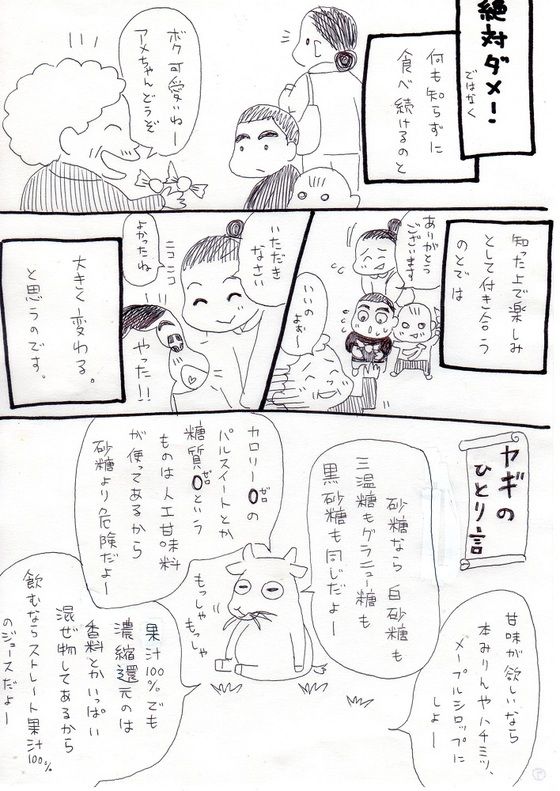 絶対ダメ!
ではなく
何も知らずに
食べ続けるのと
ボク可愛いねー
アメちゃんどうぞ
知った上で楽しみ
として付き合う
のとでは
ありがとう
ございます
いいの
よぉ〜
いただき
なさい
ニコニコ
よかったね
やった!!
大きく変わる。
と思うのです。
ヤギの
ひとり言
甘味が欲しいなら
本みりんやハチミツ、
メープルシロップに
しよー
砂糖なら白砂糖も
三温糖もグラニュー糖も
黒砂糖も同じだよー
カロリー0ゼロの
パルスイートとか
糖質0ゼロという
ものは人工甘味料
が使ってあるから
砂糖より危険だよー
もっしゃ
もっしゃ
果汁100%でも
濃縮還元のは
香料とかいっぱい
混ぜ物してあるから
飲むならストレート果汁100%
のジュースだよー